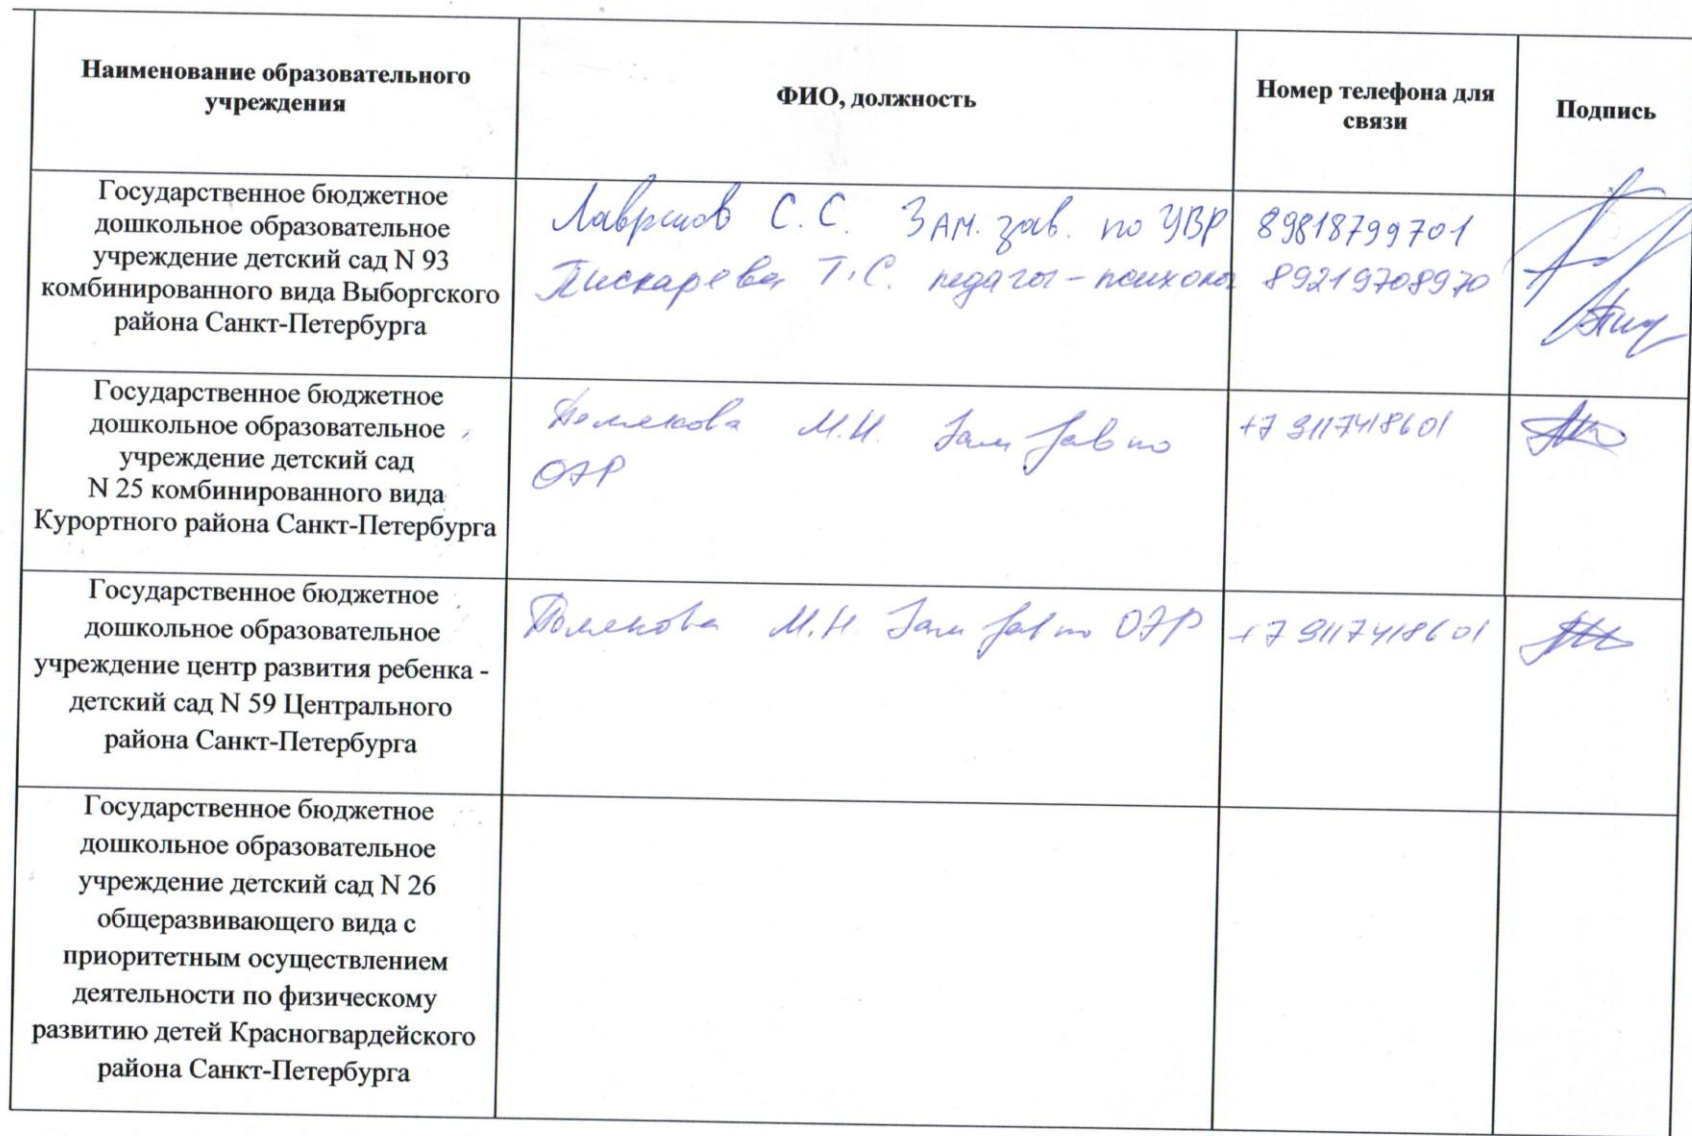 Наименование образовательного
учреждения
ФИО, должность
Номер телефона для
связи
Подпись
Государственное бюджетное
дошкольное образовательное
учреждение детский сад N 93
комбинированного вида Выборгского
района Санкт-Петербурга
С.С. Зам. зав. по УВР 89818799701
Пискарева Т.С. педагог-психолог 89219708970
Государственное бюджетное
дошкольное образовательное
учреждение детский сад
N 25 комбинированного вида
Курортного района Санкт-Петербурга
Полякова М.Н. Зам зав по
ОЭР
+7 9117418601
Государственное бюджетное
дошкольное образовательное
учреждение центр развития ребенка -
детский сад N 59 Центрального
района Санкт-Петербурга
Полякова М.Н. Зам зав по ОЭР +7 9117418601
Государственное бюджетное
дошкольное образовательное
учреждение детский сад N 26
общеразвивающего вида с
приоритетным осуществлением
деятельности по физическому
развитию детей Красногвардейского
района Санкт-Петербурга